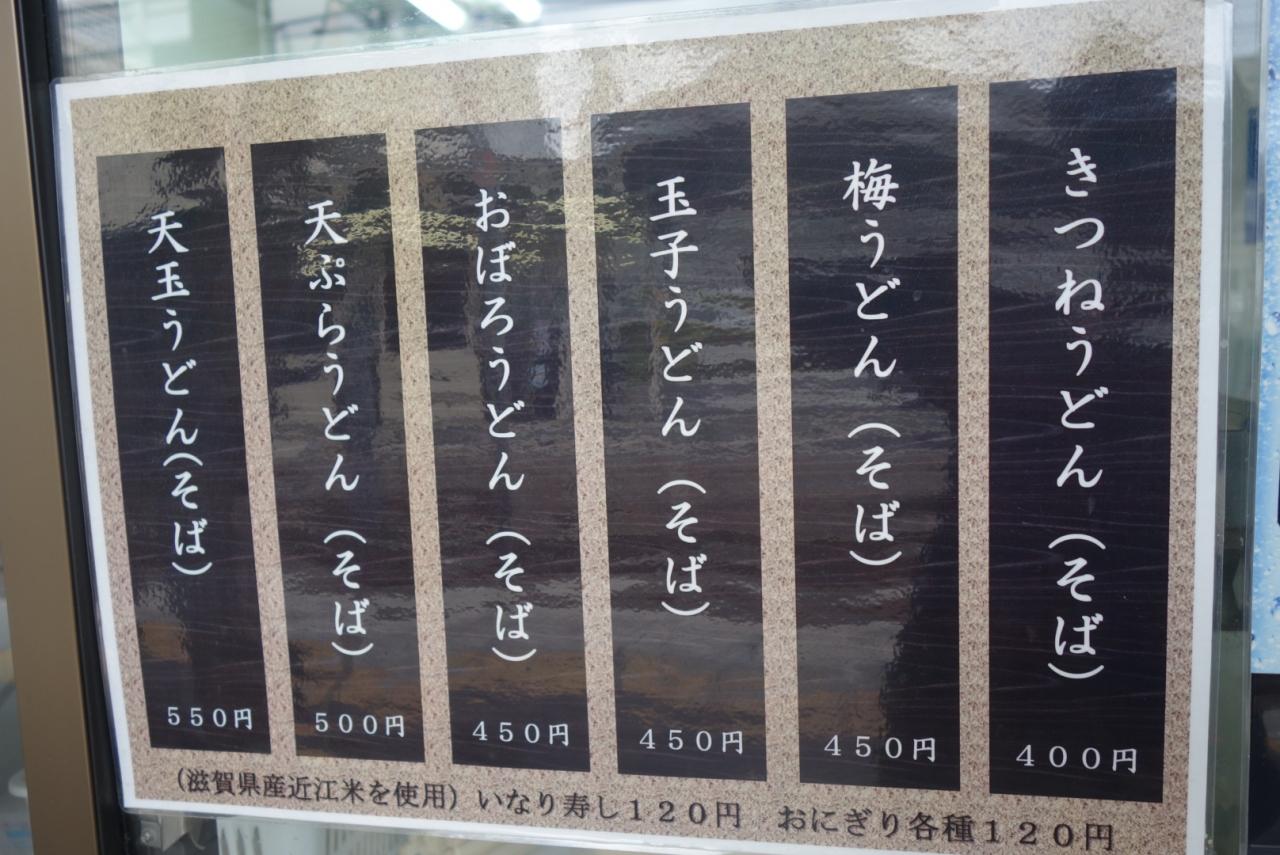 きつねうどん（そば）
400円
梅うどん（そば）
450円
玉子うどん（そば）
450円
おぼろうどん（そば）
450円
天ぷらうどん（そば）
500円
天玉うどん（そば）
550円
（滋賀県産近江米を使用）いなり寿し120円　おにぎり各種120円